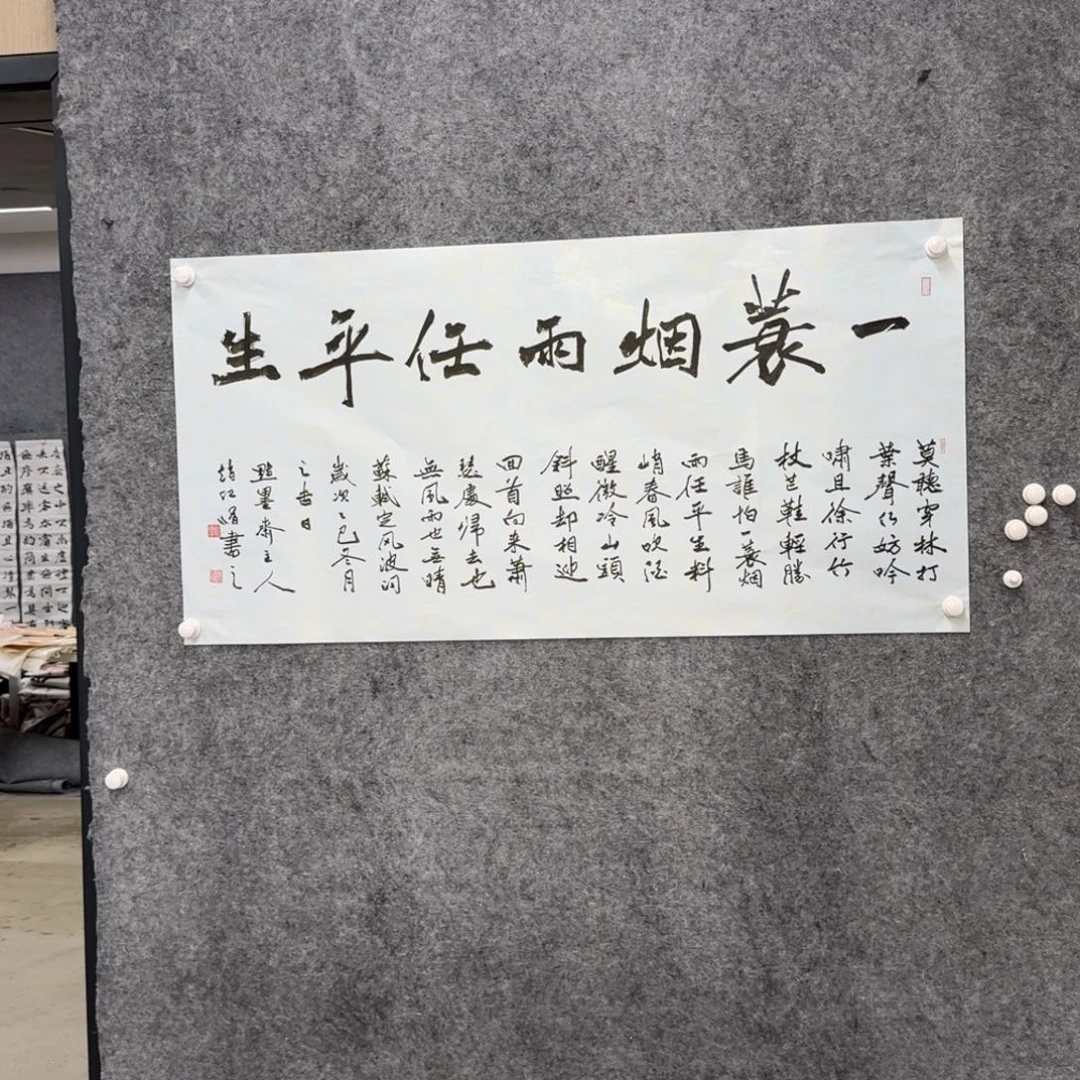 一蓑烟雨任平生
莫聽穿林打
葉聲何妨吟
嘯且徐行竹
杖芒鞋輕勝
馬誰怕一蓑烟
雨任平生料
峭春風吹酒
醒微冷山頭
斜照却相迎
回首向来蕭
瑟處歸去也
無風雨也無晴
蘇軾定风波词
歲次乙巳冬月
之吉日
點墨齋主人
書之